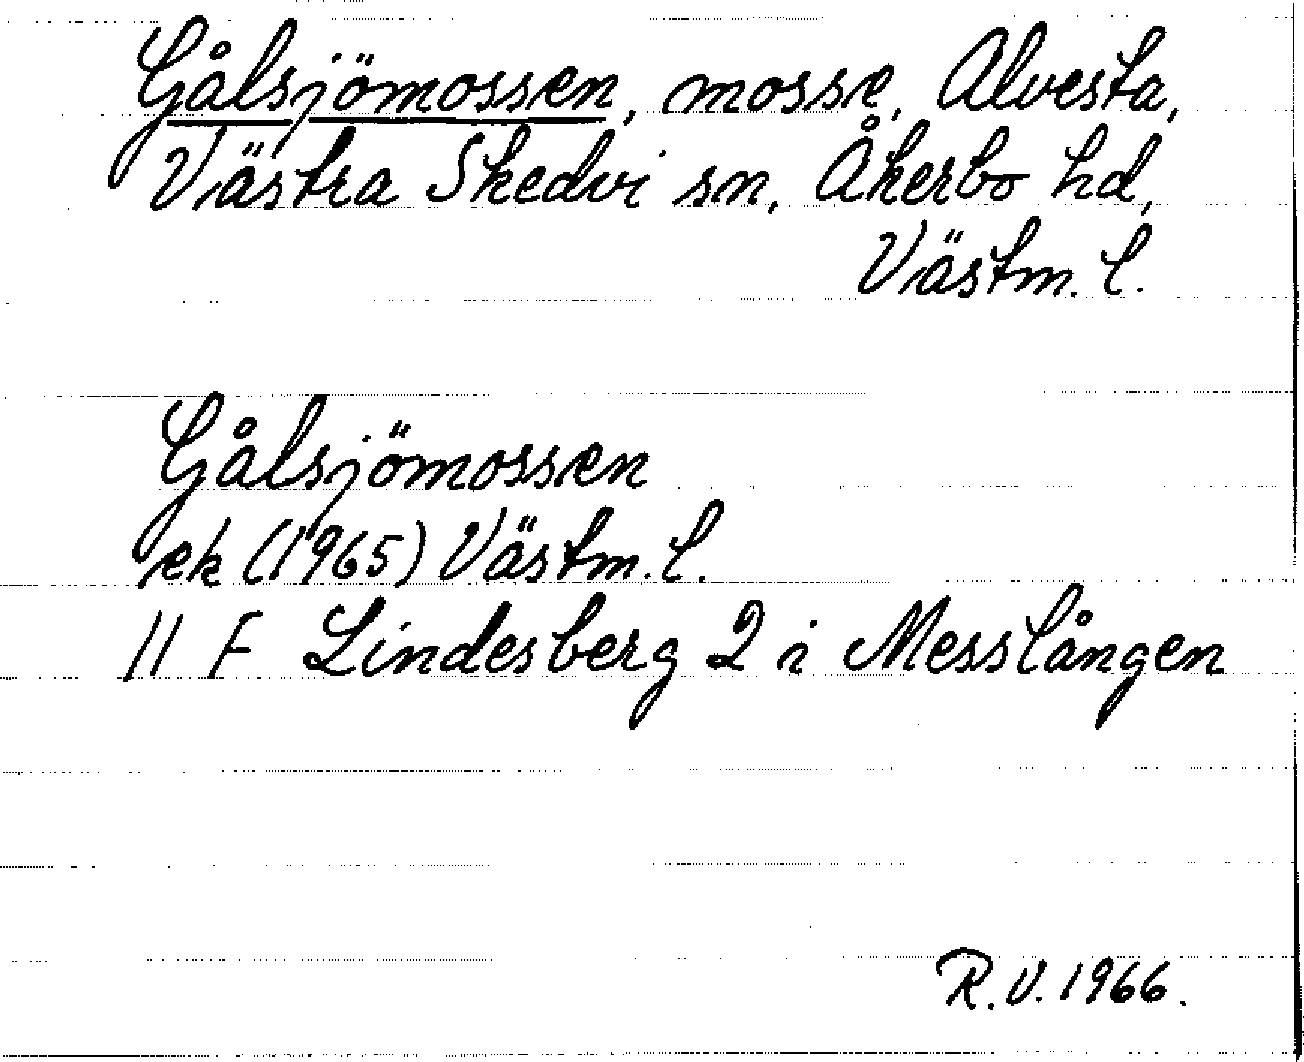 Gålsjömossen, mosse, Alvesta,
Västra Skedvi sn, Åkerbo hd,
Västm. l.
Gålsjömossen
ek (1965) Västm. l.
11 F Lindesberg 2 i Messlången
R.V. 1966.